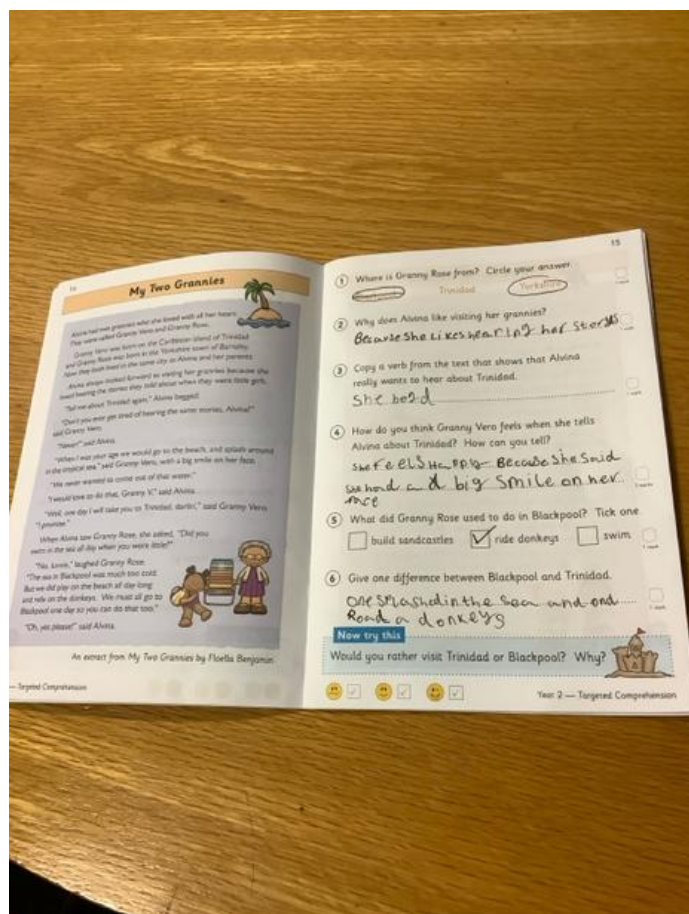 14
My Two Grannies
Alvina had two grannies who she loved with all her heart.
They were called Granny Vero and Granny Rose.
Granny Vero was born on the Caribbean island of Trinidad
and Granny Rose was born in the Yorkshire town of Barnsley.
Now they both lived in the same city as Alvina and her parents.
Alvina always looked forward to visiting her grannies because she
loved hearing the stories they told about when they were little girls.
"Tell me about Trinidad again," Alvina begged.
"Don't you ever get tired of hearing the same stories, Alvina?"
said Granny Vero.
"Never!" said Alvina.
"When I was your age we would go to the beach, and splash around
in the tropical sea," said Granny Vero, with a big smile on her face.
"We never wanted to come out of that water."
"I would love to do that, Granny V," said Alvina.
"Well, one day I will take you to Trinidad, darlin'," said Granny Vero.
"I promise."
When Alvina saw Granny Rose, she asked, "Did you
swim in the sea all day when you were little?"
"No, lovie," laughed Granny Rose.
"The sea in Blackpool was much too cold.
But we did play on the beach all day long
and ride on the donkeys. We must all go to
Blackpool one day so you can do that too."
"Oh, yes please!" said Alvina.
An extract from My Two Grannies by Floella Benjamin
— Targeted Comprehension
15
1 Where is Granny Rose from? Circle your answer.
Trinidad Yorkshire
1 mark
2 Why does Alvina like visiting her grannies?
Because She Likes hearing her storys
1 mark
3 Copy a verb from the text that shows that Alvina
really wants to hear about Trinidad.
She begd
1 mark
4 How do you think Granny Vero feels when she tells
Alvina about Trinidad? How can you tell?
She Feels Happy Because She Said
She had a big smile on her
face
2 marks
5 What did Granny Rose used to do in Blackpool? Tick one.
build sandcastles ride donkeys swim
1 mark
6 Give one difference between Blackpool and Trinidad.
one splashed in the Sea and one
Road a donkeys
1 mark
Now try this
Would you rather visit Trinidad or Blackpool? Why?
Year 2 — Targeted Comprehension